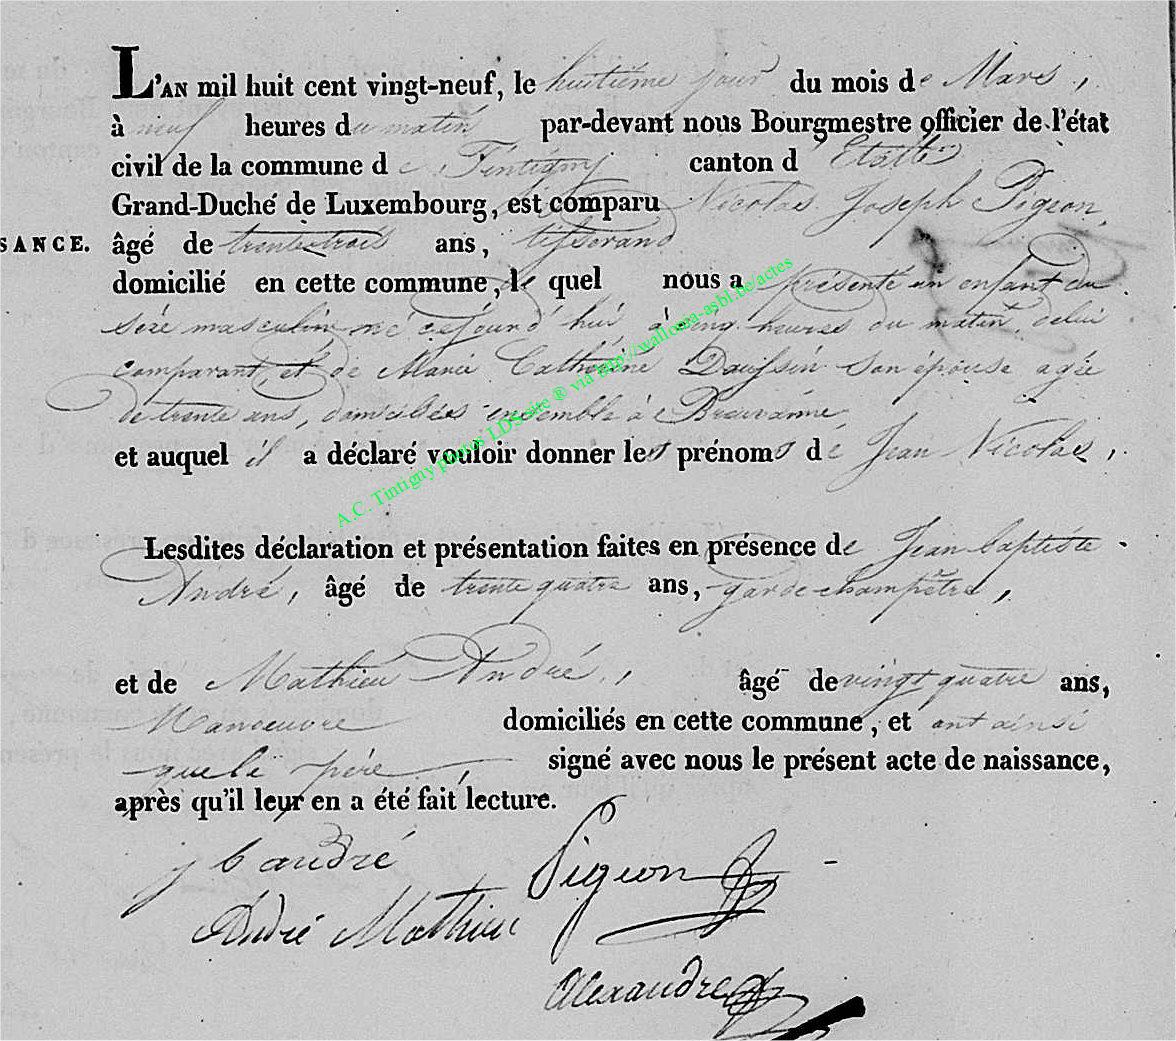 L'AN mil huit cent vingt-neuf, le huitième jour du mois de Mars,
à neuf heures du matin par-devant nous Bourgmestre officier de l'état
civil de la commune de Tintigny canton d'Etalle
Grand-Duché de Luxembourg, est comparu Nicolas Joseph Pigeon,
SANCE. âgé de trente trois ans, tisserand
domicilié en cette commune, le quel nous a présenté un enfant du
sexe masculin né cejourd'hui, à cinq heures du matin, de lui
comparant, et de Marie Catherine son épouse agée
de trente ans, domiciliés ensemble à
et auquel il a déclaré vouloir donner les prénoms de Jean Nicolas,
Lesdites déclaration et présentation faites en présence de Jean baptiste
André, âgé de trente quatre ans, garde champêtre,
et de Mathieu André, âgé de vingt quatre ans,
Manoeuvre domiciliés en cette commune, et ont ainsi
que le père, signé avec nous le présent acte de naissance,
après qu'il leur en a été fait lecture.
j b andré Pigeon
André Mathieu
Alexandre
A.C. Tintigny photos LDS site ® via http://wallonia-asbl.be/actes